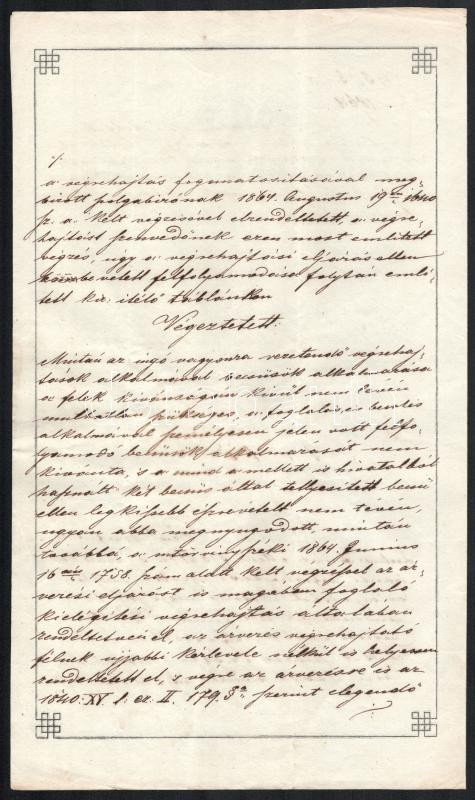 ·/.
a végrehajtás foganatositásával meg-
bizott polgabirónak 1864. Augustus 19én 1640
sz. a. kelt végzésével elrendeltetett a végre-
hajtást szenvedőnek ezen most emlitett
végzés, ugy a végrehajtási eljárás ellen
közbevetett felfolyamodása folytán emli-
tett kir: itélő táblánkon
Végeztetett:
Miután az ingó vagyonra vezetendő végrehaj-
tások alkalmával becsüsök alkalmazása
a felek kivánságán kivül nem
mulhatlan szükséges, a foglalás és becslés
alkalmával személyesen jelen volt felfo-
lyamodó becsüsök alkalmazását nem
kivánta, s a mind a mellett is hivatalból
használt két becsüs által teljesitett becsü
ellen legkisebb észrevételt nem tévén,
ugyan abba megnyugodott, miután
továbbá, a törvényszéki 1864. Junius
16án 1758. szám alatt kelt végzéssel az ár-
verési eljárást is magában foglaló
kielégitési végrehajtás általában
rendeltetvén el, az árverés végrehajtató
félnek ujjabbi kérlevele nélkül is helyesen
rendeltetett el, s végre az árverésre is az
1840: XV. t. cz. II. 179. §a szerint elegendő
·/.